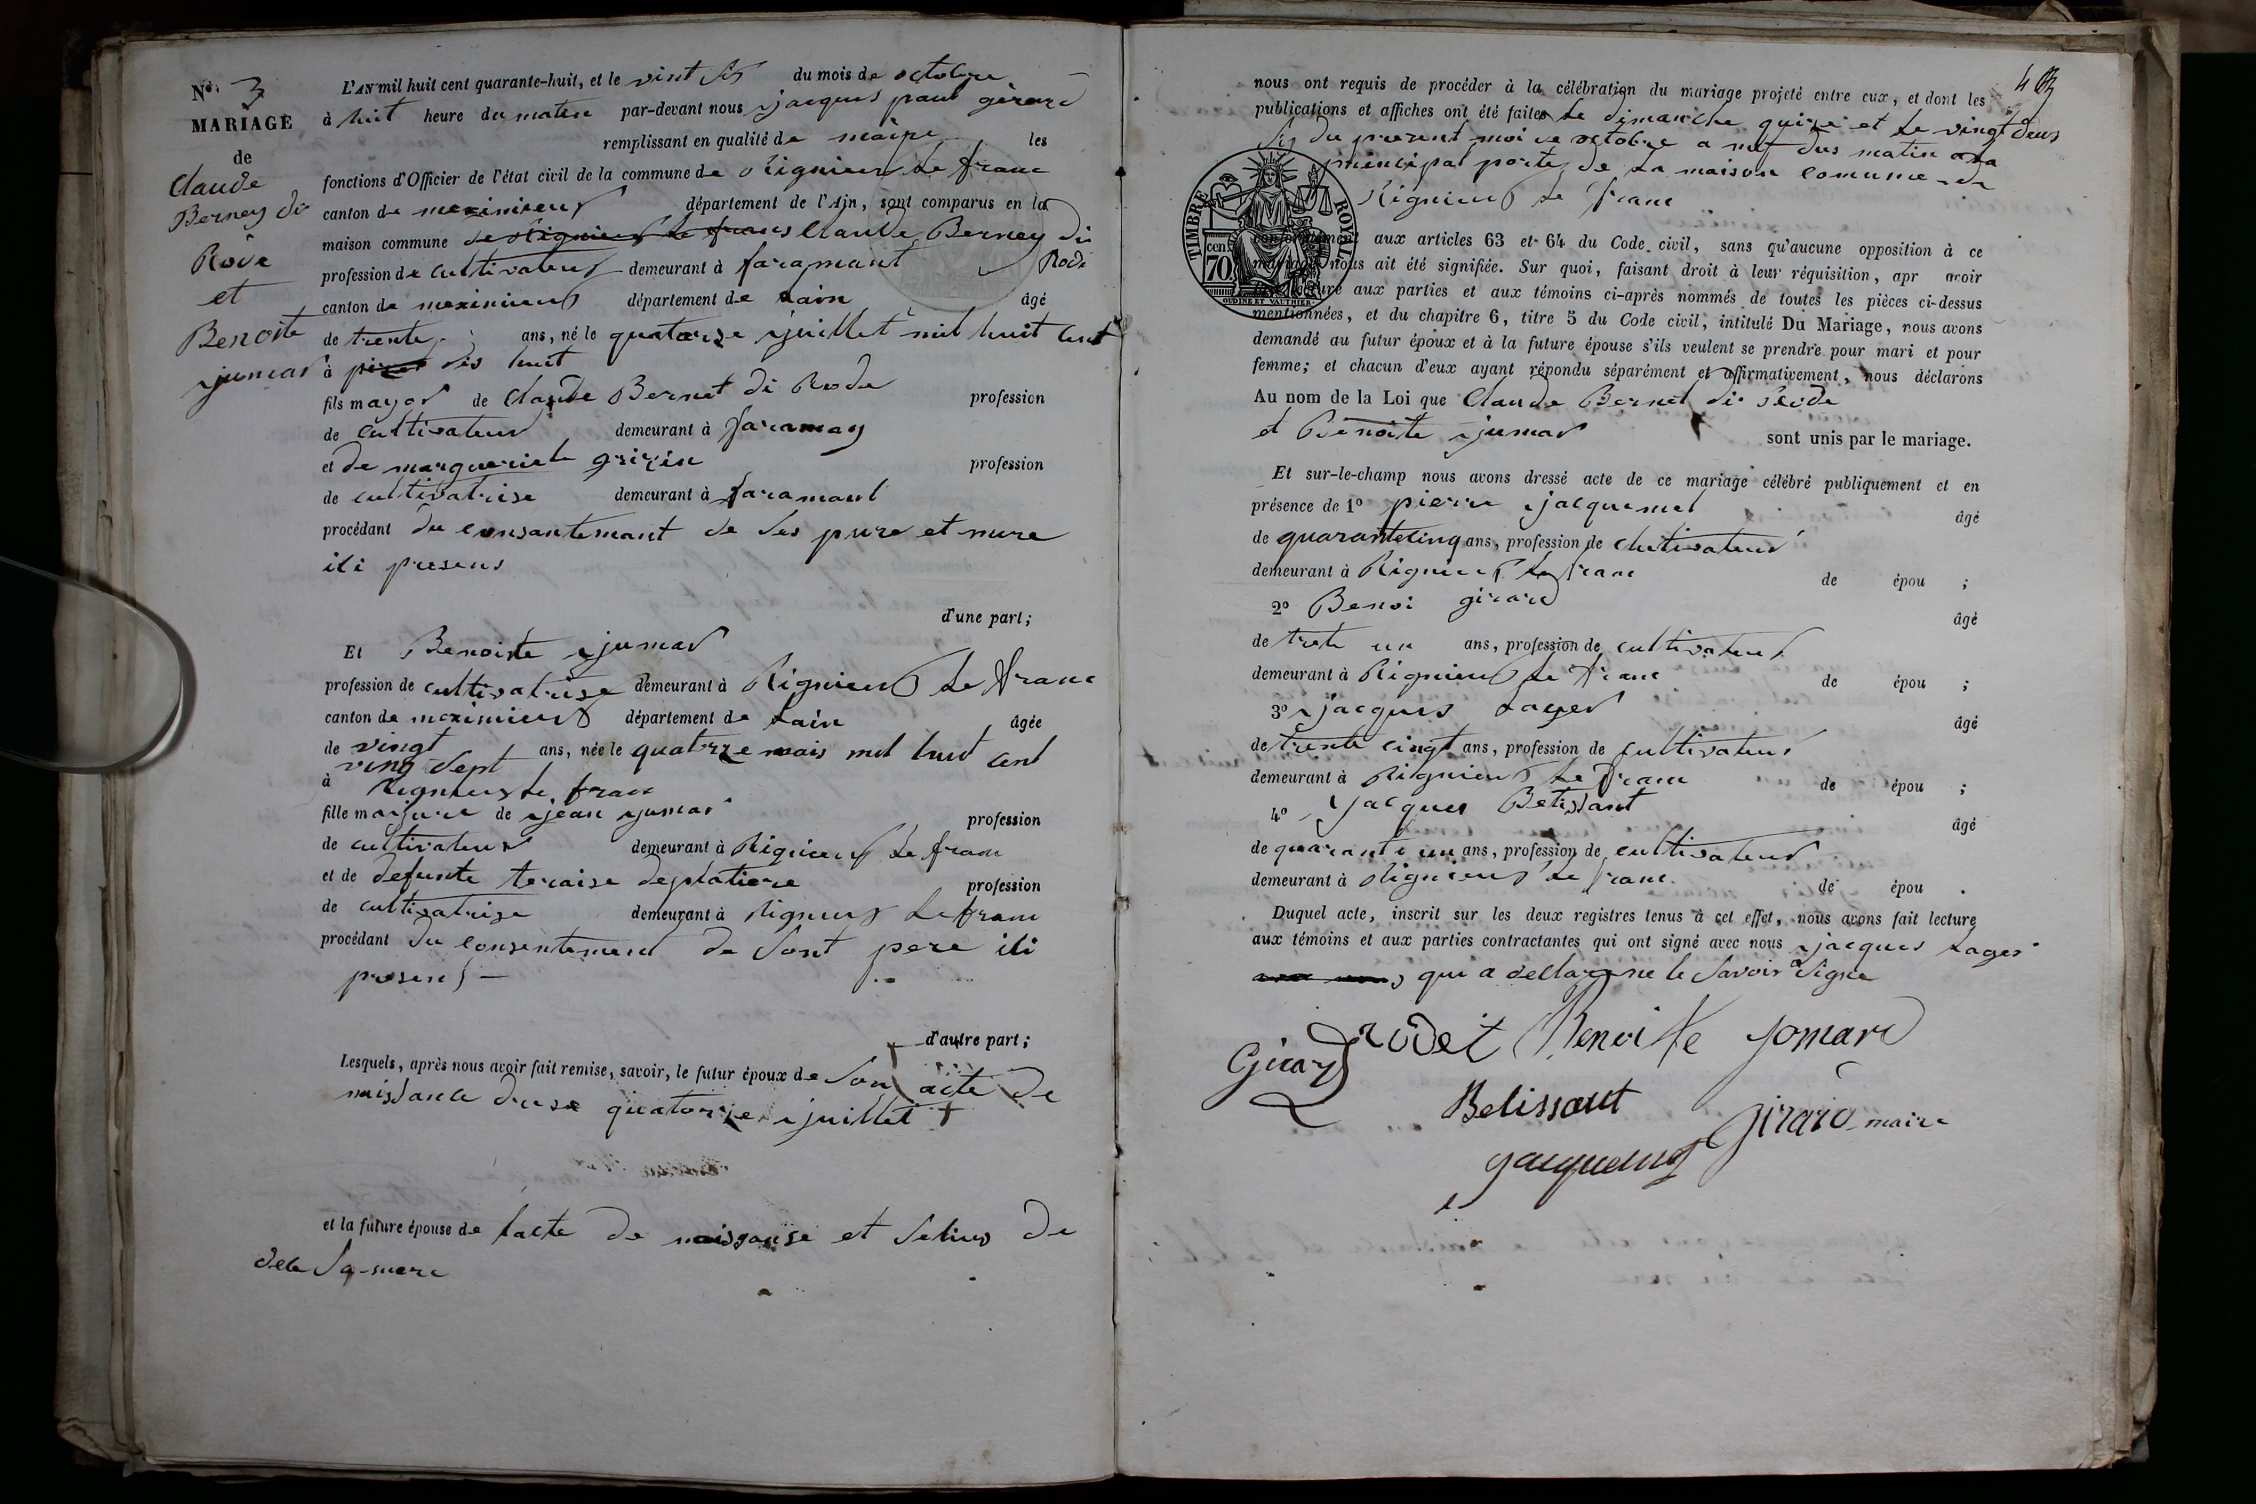 N° 3
MARIAGE
de
Claude
Berney di
Rode
et
Benoite
jumar
L'AN mil huit cent quarante-huit, et le vint sis du mois de octobre
à huit heure du matin par-devant nous jacques paul girard
remplissant en qualité de maire les
fonctions d'Officier de l'état civil de la commune de Rignieux le franc
canton de meximieux département de l'Ain, sont comparus en la
maison commune de Rignieux le franc Claude Berney di
Rode
profession de cultivateur demeurant à faramant
canton de meximieux département de Lain âgé
de trente ans, né le quatorze juillet mil huit cent
à dis huit
fils mayor de Claude Bernet di Rode profession
de cultivateur demeurant à faramay
et de marguerite grizin profession
de cultivatrise demeurant à faramant
procédant du consantemant de ses pure et mure
isi presens
d'une part;
Et Benoiste jumar
profession de cultivatrise demeurant à Rignieux le franc
canton de meximieux département de Lain âgée
de vingt ans, née le quatorze mais mil huit cent
ving sept
à Rignieux le franc
fille marjure de jean jumar profession
de cultivateur demeurant à Rignieux le franc
et de defunte teraise deplatiere profession
de cultivatrise demeurant à Rignieux le franc
procédant du consentement de sont pere isi
presens
d'autre part;
Lesquels, après nous avoir fait remise, savoir, le futur époux de son acte de
naissance quatorze juillet
et la future épouse de lacte de naissanse et selius de
dela sa mere
4
nous ont requis de procéder à la célébration du mariage projeté entre eux, et dont les
publications et affiches ont été faites le dimanche quize et le vingt deus
du present moi de octobre a neuf dus matin a la
principal porte de la maison comune de
Rignieux le franc
TIMBRE ROYAL
cent 70
OUDINE ET VAUTHIER
conformément aux articles 63 et 64 du Code civil, sans qu'aucune opposition à ce
mariage nous ait été signifiée. Sur quoi, faisant droit à leur réquisition, apr avoir
lecture aux parties et aux témoins ci-après nommés de toutes les pièces ci-dessus
mentionnées, et du chapitre 6, titre 5 du Code civil, intitulé Du Mariage, nous avons
demandé au futur époux et à la future épouse s'ils veulent se prendre pour mari et pour
femme; et chacun d'eux ayant répondu séparément et affirmativement, nous déclarons
Au nom de la Loi que Claude Bernet di Rode
et Benoite jumar sont unis par le mariage.
Et sur-le-champ nous avons dressé acte de ce mariage célébré publiquement et en
présence de 1° pierre jacquemet âgé
de quarante cinq ans, profession de cultivateur
demeurant à Rignieux le franc de épou ;
2° Benoi girard âgé
de trete un ans, profession de cultivateur
demeurant à Rignieux le franc de épou ;
3° jacques Lager âgé
de trente cingt ans, profession de cultivateur
demeurant à Rignieux le franc de épou ;
4° jacques Betissant âgé
de quarante un ans, profession de cultivateur
demeurant à Rignieux le franc de épou .
Duquel acte, inscrit sur les deux registres tenus à cet effet, nous avons fait lecture
aux témoins et aux parties contractantes qui ont signé avec nous jacques Lager
qui a dellare ne le savoir signe
Girard Rodet Benoite jomard
Belissant Girard maire
jacquemet